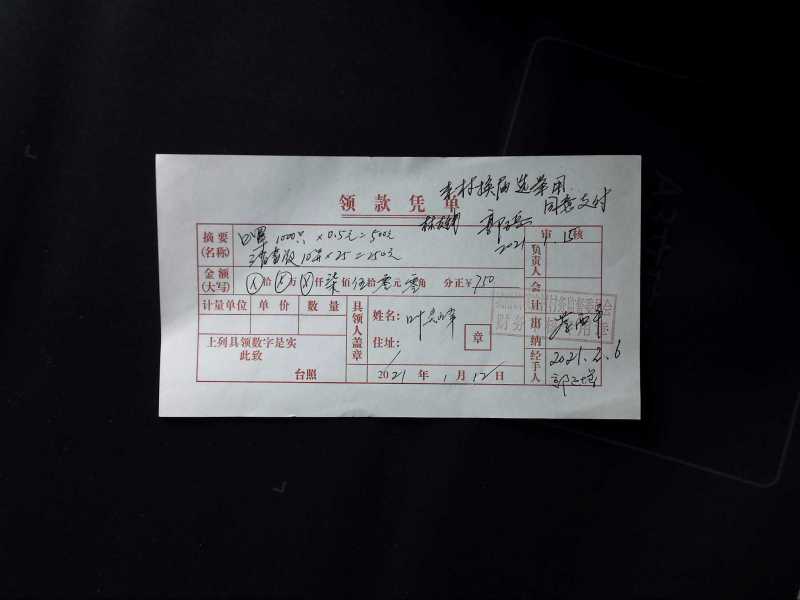 本村换届选举用
同意交付
领款凭单
2021.1.15
审核
摘要
(名称)
口罩 1000只 × 0.5元 = 500元
消毒液 10 × 25 = 250元
金额
(大写)
拾 万 仟 柒 佰 伍 拾 零 元 零 角 分正￥750
计量单位 单价 数量
上列具领数字是实
此致
台照
具领人盖章
姓名：叶
住址：
章
2021年1月12日
负责人
会计
出纳
经手人
2021.2.6